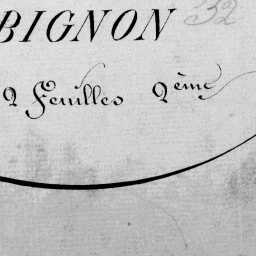 32
BIGNON
2 Feuilles 2ème